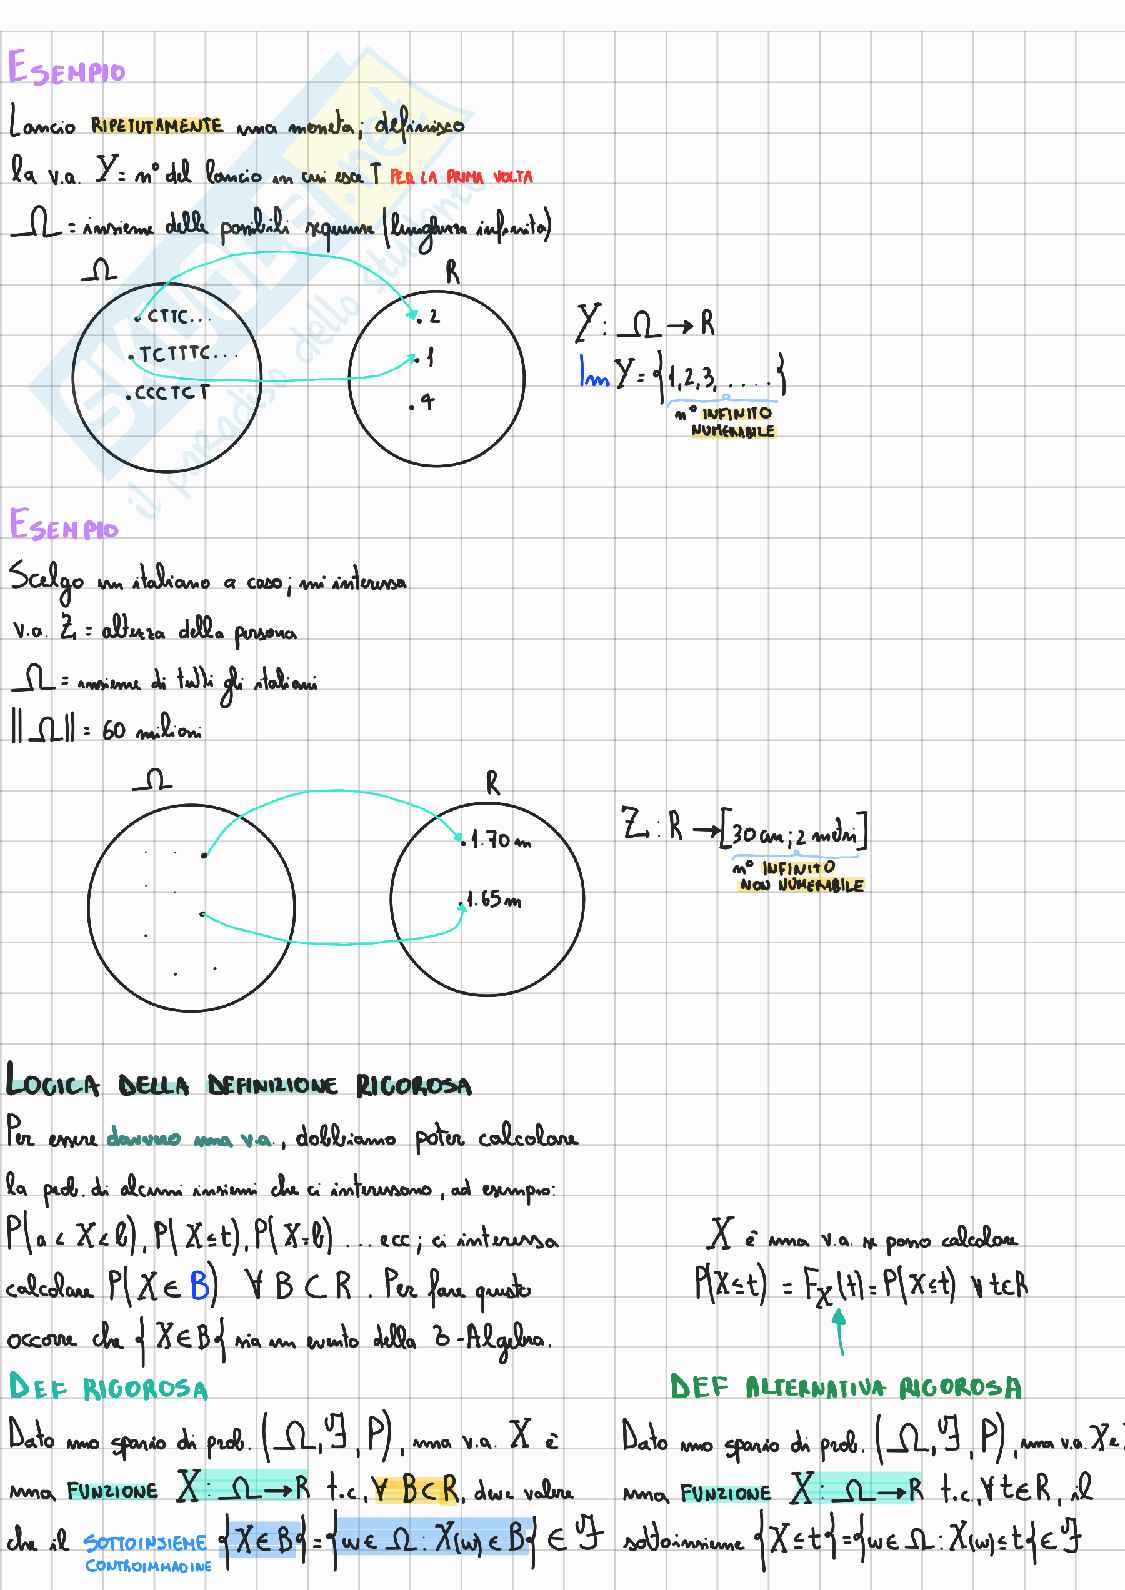 ESEMPIO
Lancio RIPETUTAMENTE una moneta; definisco
la v.a. Y = n° del lancio in cui esce T PER LA PRIMA VOLTA
Ω = insieme delle possibili sequenze (lunghezza infinita)
Ω R
CTTC... 2
TCTTTC... 1
CCCTCT 4
Y: Ω → R
Im Y = {1,2,3, .....}
n° INFINITO
NUMERABILE
ESEMPIO
Scelgo un italiano a caso; mi interessa
v.a. Z = altezza della persona
Ω = insieme di tutti gli italiani
||Ω|| = 60 milioni
Ω R
1.70 m
1.65 m
Z: R → [30 cm; 2 metri]
n° INFINITO
NON NUMERABILE
LOGICA DELLA DEFINIZIONE RIGOROSA
Per essere davvero una v.a., dobbiamo poter calcolare
la prob. di alcuni insiemi che ci interessano, ad esempio:
P(a < X < b), P(X ≤ t), P(X = b) ... ecc; ci interessa
calcolare P(X ∈ B) ∀ B ⊂ R. Per fare questo
occorre che {X ∈ B} sia un evento della σ-Algebra.
X è una v.a. se posso calcolare
P(X ≤ t) = F_X(t) = P(X ≤ t) ∀ t ∈ R
DEF RIGOROSA
Dato uno spazio di prob. (Ω, F, P), una v.a. X è
una FUNZIONE X: Ω → R t.c. ∀ B ⊂ R, deve valere
che il SOTTOINSIEME {X ∈ B} = {w ∈ Ω : X(w) ∈ B} ∈ F
CONTROIMMAGINE
DEF ALTERNATIVA RIGOROSA
Dato uno spazio di prob. (Ω, F, P), una v.a. X è
una FUNZIONE X: Ω → R t.c. ∀ t ∈ R, il
sottoinsieme {X ≤ t} = {w ∈ Ω : X(w) ≤ t} ∈ F
SKUOLA.net
il paradiso dello studente